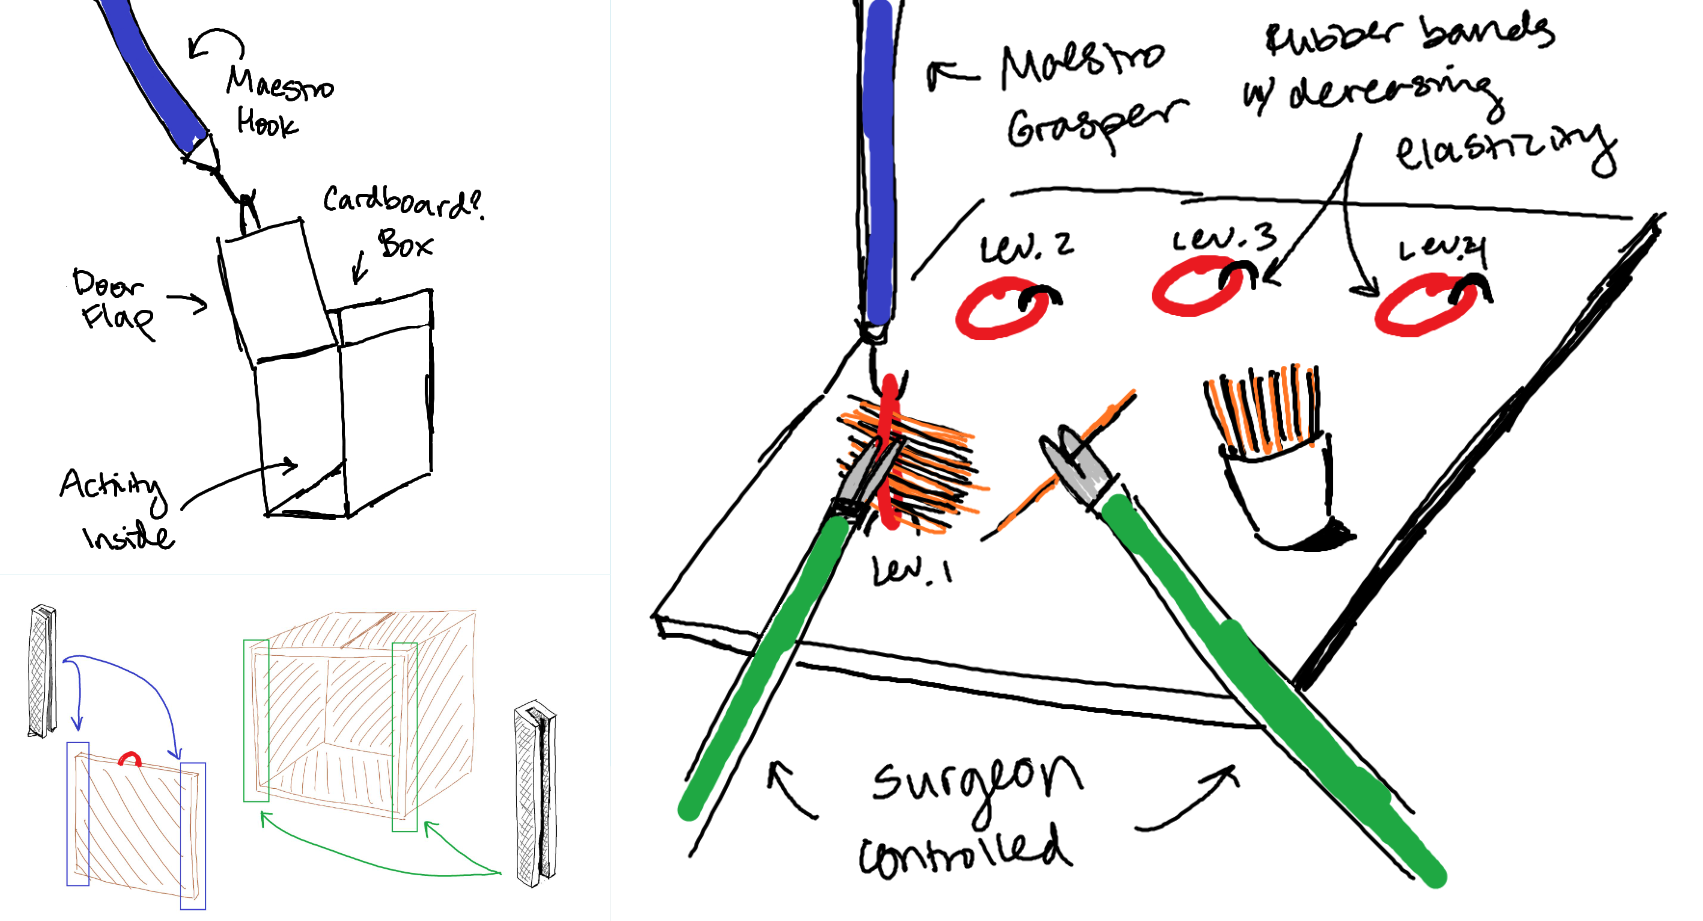 Maestro
Hook
Cardboard?
Box
Door
Flap
Activity
Inside
Maestro
Grasper
Rubber bands
w/ decreasing
elastizity
Lev. 2
Lev. 3
Lev. 4
Lev. 1
surgeon
controlled